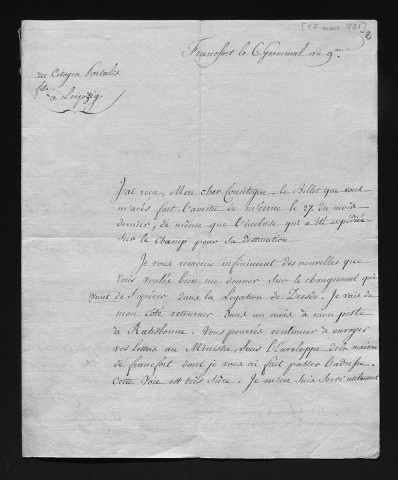 [27 mars 1801] 2
Francfort le 6. Germinal an 9.me
au Citoyen Portalis
fils
à Leipzig.
J'ai reçu, Mon cher Concitoyen, le Billet que vous
m'avés fait l'amitié de m'écrire le 27. du mois
dernier, de même que l'incluse qui a été expédiée
sur le champ pour sa destination
Je vous remercie infiniment des nouvelles que
vous voulés bien me donner sur le changement qui
vient de s'opérer dans la Légation de Dresde. Je vais de
mon côté retourner dans un mois à mon poste
à Ratisbonne. Vous pourrés continuer à envoyer
vos lettres au Ministre, sous l'Enveloppe de la maison
de francfort dont je vous ai fait passer l'adresse.
Cette Voie est très sûre. Je m'en suis servi utilement